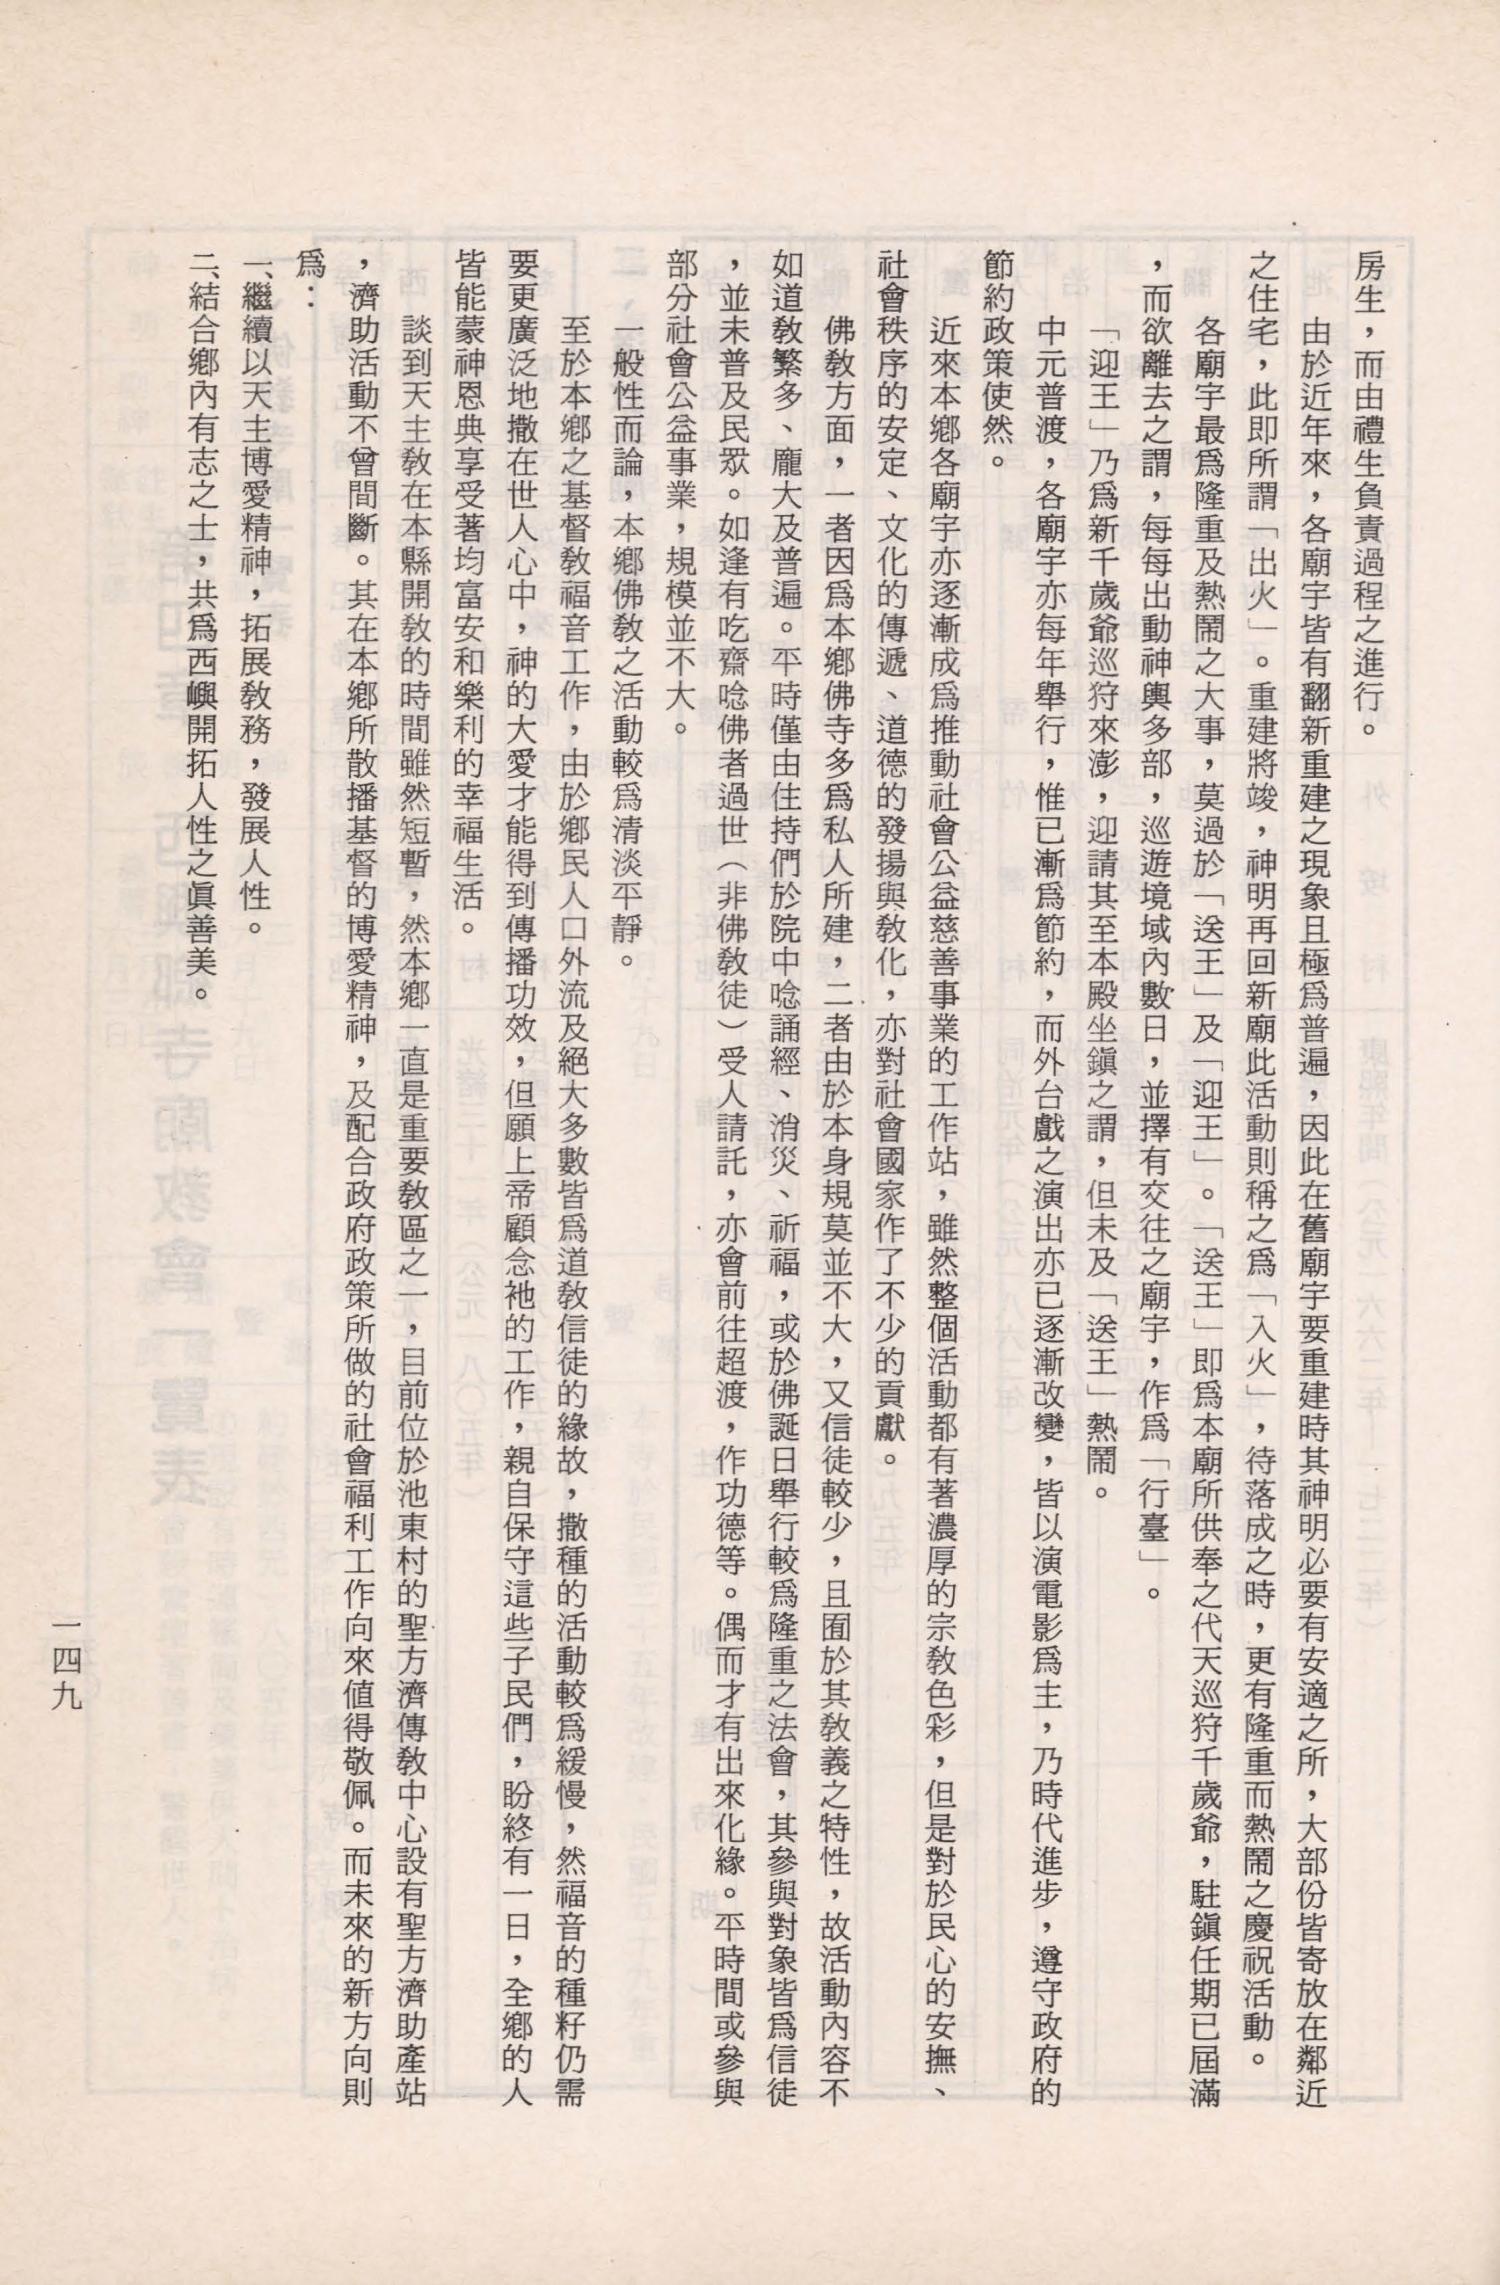 房生，而由禮生負責過程之進行。
由於近年來，各廟宇皆有翻新重建之現象且極爲普遍，因此在舊廟宇要重建時其神明必要有安適之所，大部份皆寄放在鄰近
之住宅，此即所謂「出火」。重建將竣，神明再回新廟此活動則稱之爲「入火」，待落成之時，更有隆重而熱鬧之慶祝活動。
各廟宇最爲隆重及熱鬧之大事，莫過於「送王」及「迎王」。「送王」即爲本廟所供奉之代天巡狩千歲爺，駐鎭任期已屆滿
，而欲離去之謂，每每出動神輿多部，巡遊境域內數日，並擇有交往之廟宇，作爲「行臺」。
「迎王」乃爲新千歲爺巡狩來澎，迎請其至本殿坐鎭之謂，但未及「送王」熱鬧。
中元普渡，各廟宇亦每年舉行，惟已漸爲節約，而外台戲之演出亦已逐漸改變，皆以演電影爲主，乃時代進步，遵守政府的
節約政策使然。
近來本鄉各廟宇亦逐漸成爲推動社會公益慈善事業的工作站，雖然整個活動都有著濃厚的宗敎色彩，但是對於民心的安撫、
社會秩序的安定、文化的傳遞、道德的發揚與敎化，亦對社會國家作了不少的貢獻。
佛敎方面，一者因爲本鄉佛寺多爲私人所建，二者由於本身規莫並不大，又信徒較少，且囿於其敎義之特性，故活動內容不
如道敎繁多、龐大及普遍。平時僅由住持們於院中唸誦經、消災、祈福，或於佛誕日舉行較爲隆重之法會，其參與對象皆爲信徒
，並未普及民眾。如逢有吃齋唸佛者過世（非佛敎徒）受人請託，亦會前往超渡，作功德等。偶而才有出來化緣。平時間或參與
部分社會公益事業，規模並不大。
一般性而論，本鄉佛敎之活動較爲清淡平靜。
至於本鄉之基督敎福音工作，由於鄉民人口外流及絕大多數皆爲道敎信徒的緣故，撒種的活動較爲緩慢，然福音的種籽仍需
要更廣泛地撒在世人心中，神的大愛才能得到傳播功效，但願上帝顧念祂的工作，親自保守這些子民們，盼終有一日，全鄉的人
皆能蒙神恩典享受著均富安和樂利的幸福生活。
談到天主敎在本縣開敎的時間雖然短暫，然本鄉一直是重要敎區之一，目前位於池東村的聖方濟傳敎中心設有聖方濟助產站
，濟助活動不曾間斷。其在本鄉所散播基督的博愛精神，及配合政府政策所做的社會福利工作向來值得敬佩。而未來的新方向則
爲：
一、繼續以天主博愛精神，拓展敎務，發展人性。
二、結合鄉內有志之士，共爲西嶼開拓人性之眞善美。
一四九